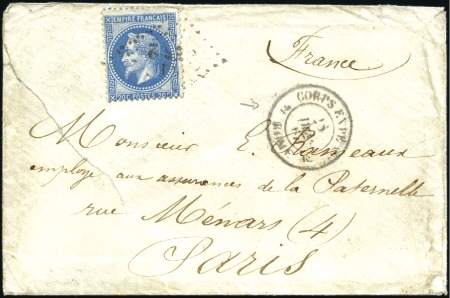 EMPIRE FRANÇAIS
20C POSTES 20C
France
CORPS EXP
Monsieur E. Rameaux
employé aux assurances de la Paternelle
rue Ménars (4)
Paris